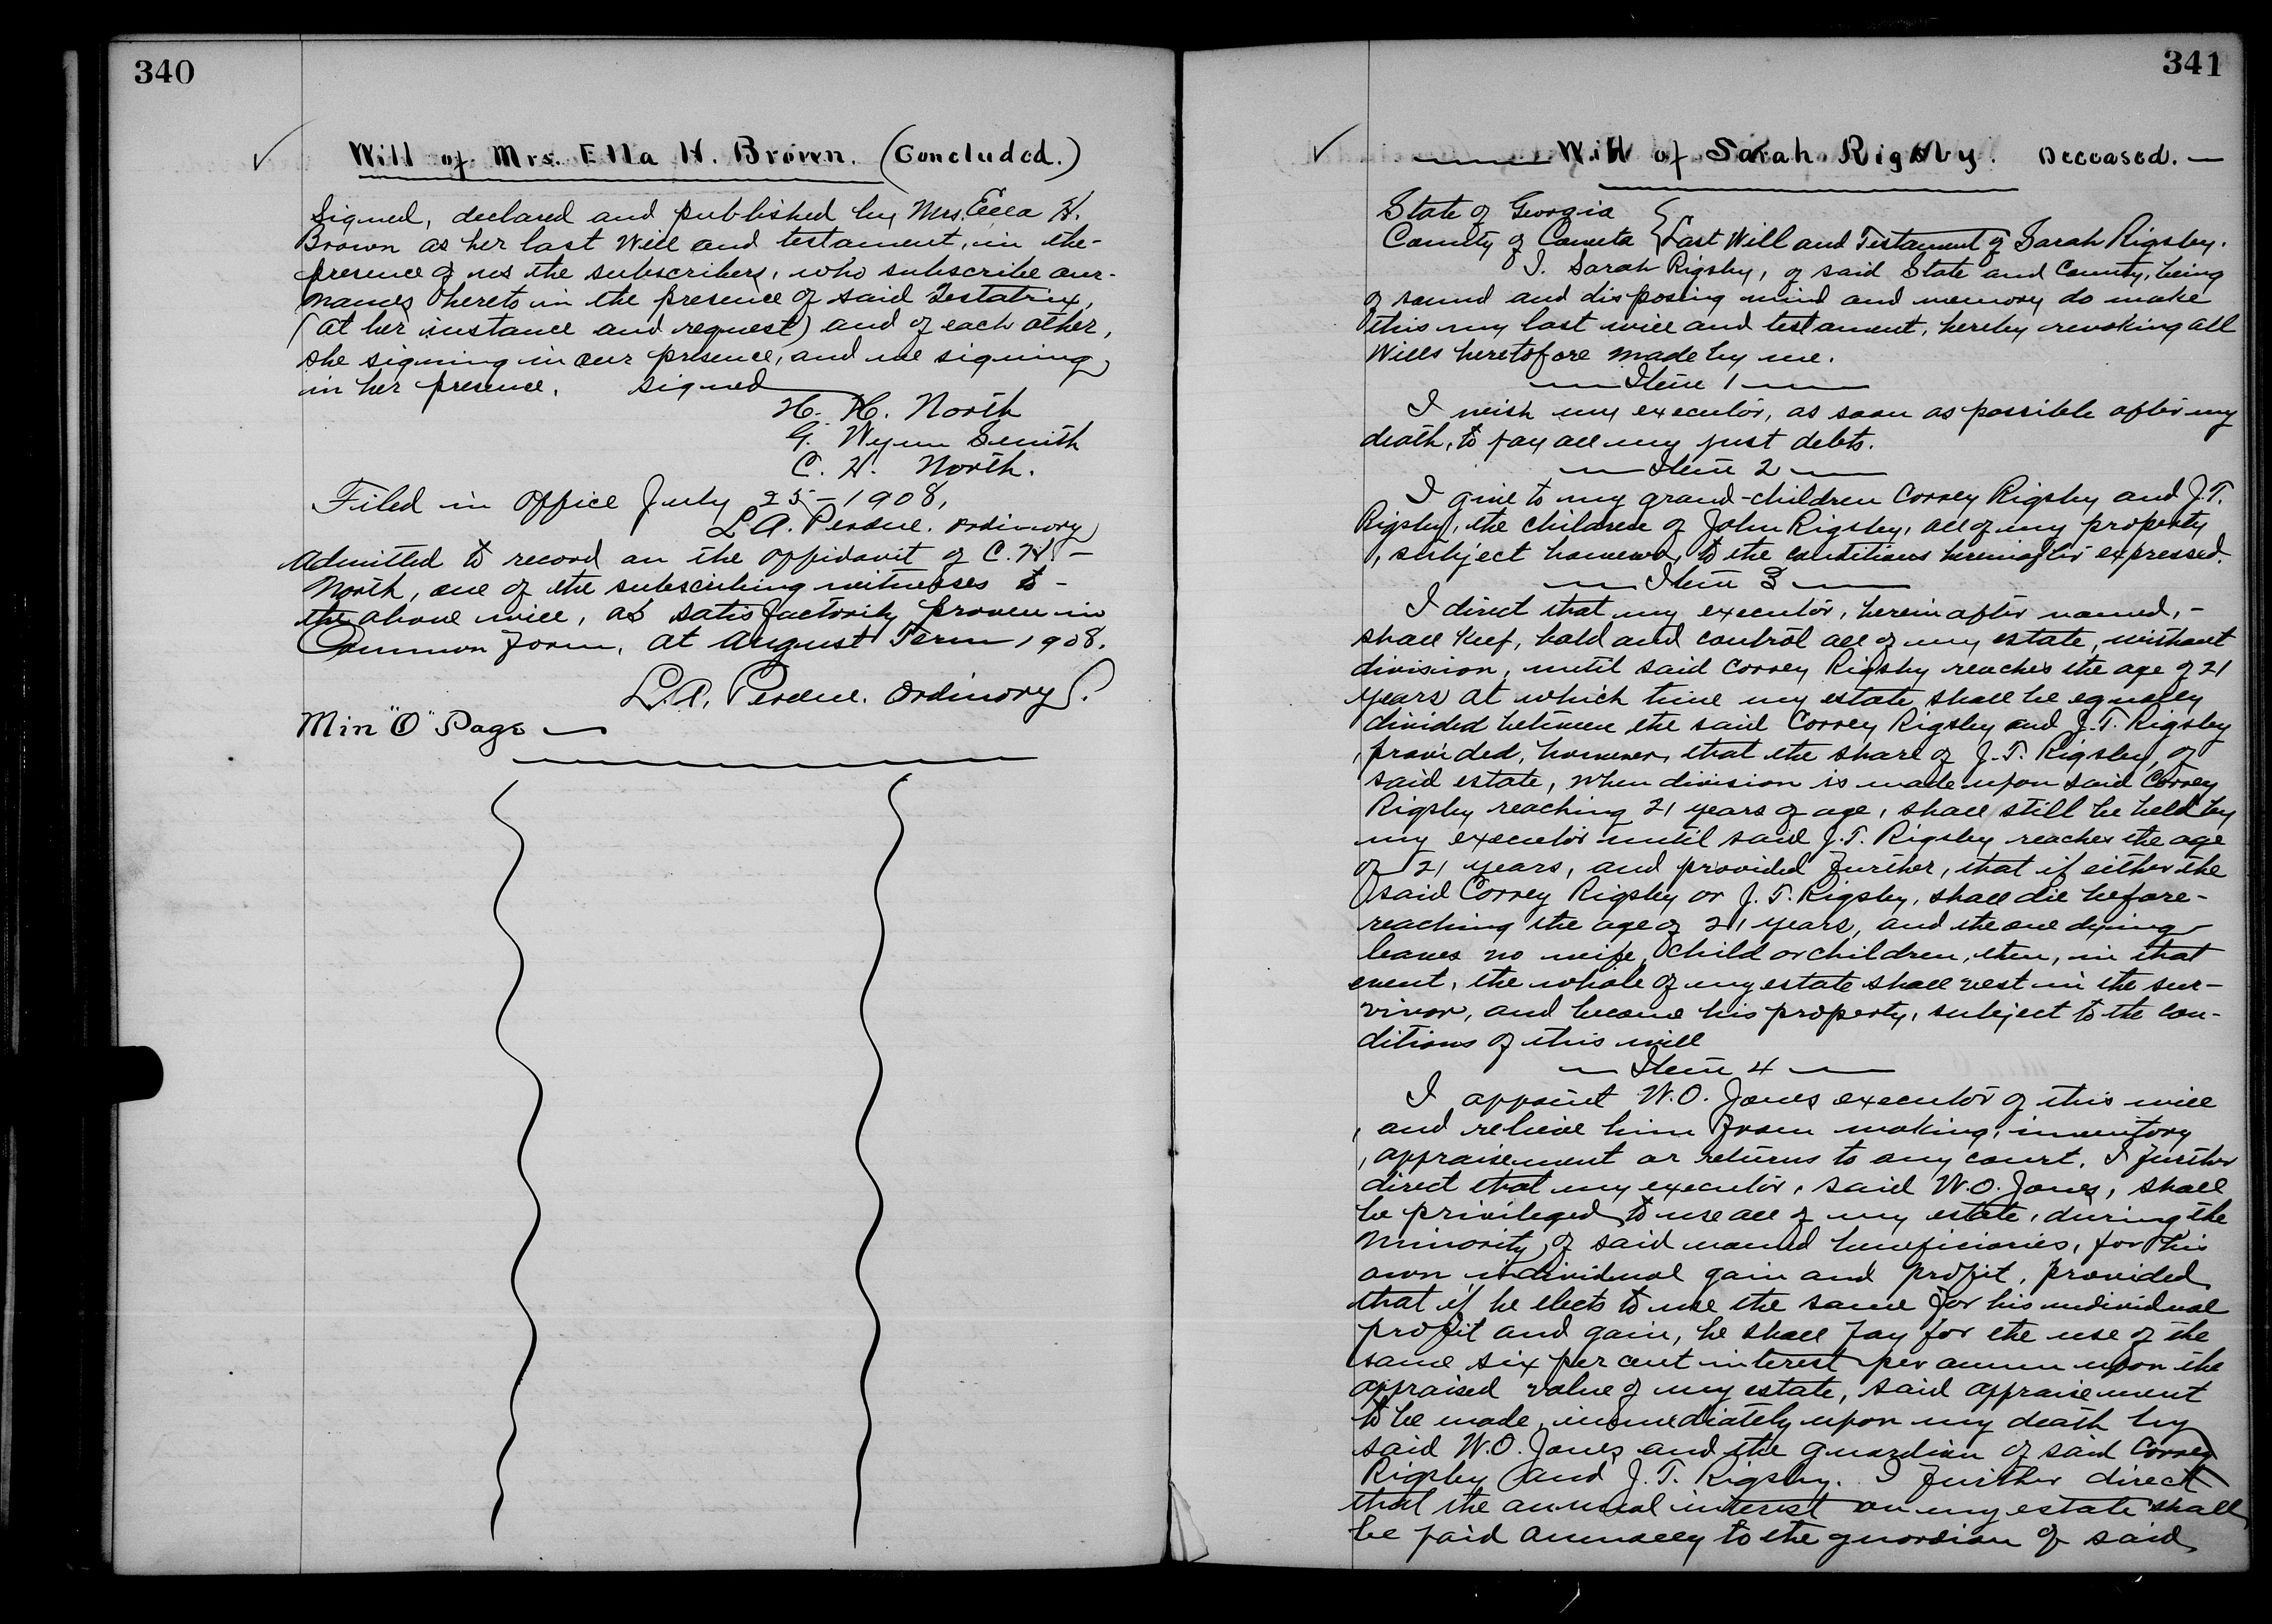 340
Will of Mrs. Ella H. Brown. (Concluded.)
Signed, declared and published by Mrs. Ella H.
Brown as her last Will and testament, in the-
presence of us the subscribers, who subscribe our-
names hereto in the presence of said Testatrix,
(at her instance and request) and of each other,
she signing in our presence, and we signing
in her presence. signed
H. H. North
G. Wynn Smith
C. H. North.
Filed in Office July 25-1908,
L.A. Perdue. Ordinary
Admitted to record on the affidavit of C. H -
North, one of the subscribing witnesses to -
the above will, as satisfactorily proven in
Common Form, at August Term 1908.
L.A. Perdue. Ordinary
Min "O" Page
341
Will of Sarah Rigsby. Deceased.
State of Georgia
County of Coweta } Last Will and Testament of Sarah Rigsby.
I. Sarah Rigsby, of said State and County, being
of sound and disposing mind and memory do make
this my last will and testament, hereby revoking all
Wills heretofore made by me.
Item 1
I wish my executor, as soon as possible after my
death, to pay all my just debts.
Item 2
I give to my grand-children Correy Rigsby and J.T.
Rigsby, the children of John Rigsby, all of my property
, subject however, to the conditions hereinafter expressed.
Item 3
I direct that my executor, herein after named, -
shall keep, hold and control all of my estate, without
division, until said Correy Rigsby reaches the age of 21
years at which time my estate shall be equally
divided between the said Correy Rigsby and J.T. Rigsby
, provided, however, that the share of J.T. Rigsby, of
said estate, when division is made upon said Correy
Rigsby reaching 21 years of age, shall still be held by
my executor until said J.T. Rigsby reaches the age
of 21 years, and provided further, that if either the
said Correy Rigsby or J.T. Rigsby, shall die before-
reaching the age of 21 years, and the one dying
leaves no wife, child or children, then, in that
event, the whole of my estate shall vest in the sur-
vivor, and become his property, subject to the con-
ditions of this will
Item 4
I appoint W.O. Jones executor of this will
, and relieve him from making, inventory
, appraisement or returns to any court. I further
direct that my executor, said W.O. Jones, shall
be privileged to use all of my estate, during the
minority of said named beneficiaries, for his
own individual gain and profit, provided
that if he elects to use the same for his individual
profit and gain, he shall pay for the use of the
same six per cent interest per annum upon the
appraised value of my estate, said appraisement
to be made, immediately upon my death by
said W.O. Jones and the guardian of said Correy
Rigsby and J.T. Rigsby. I further direct
that the annual interest on my estate shall
be paid annually to the guardian of said